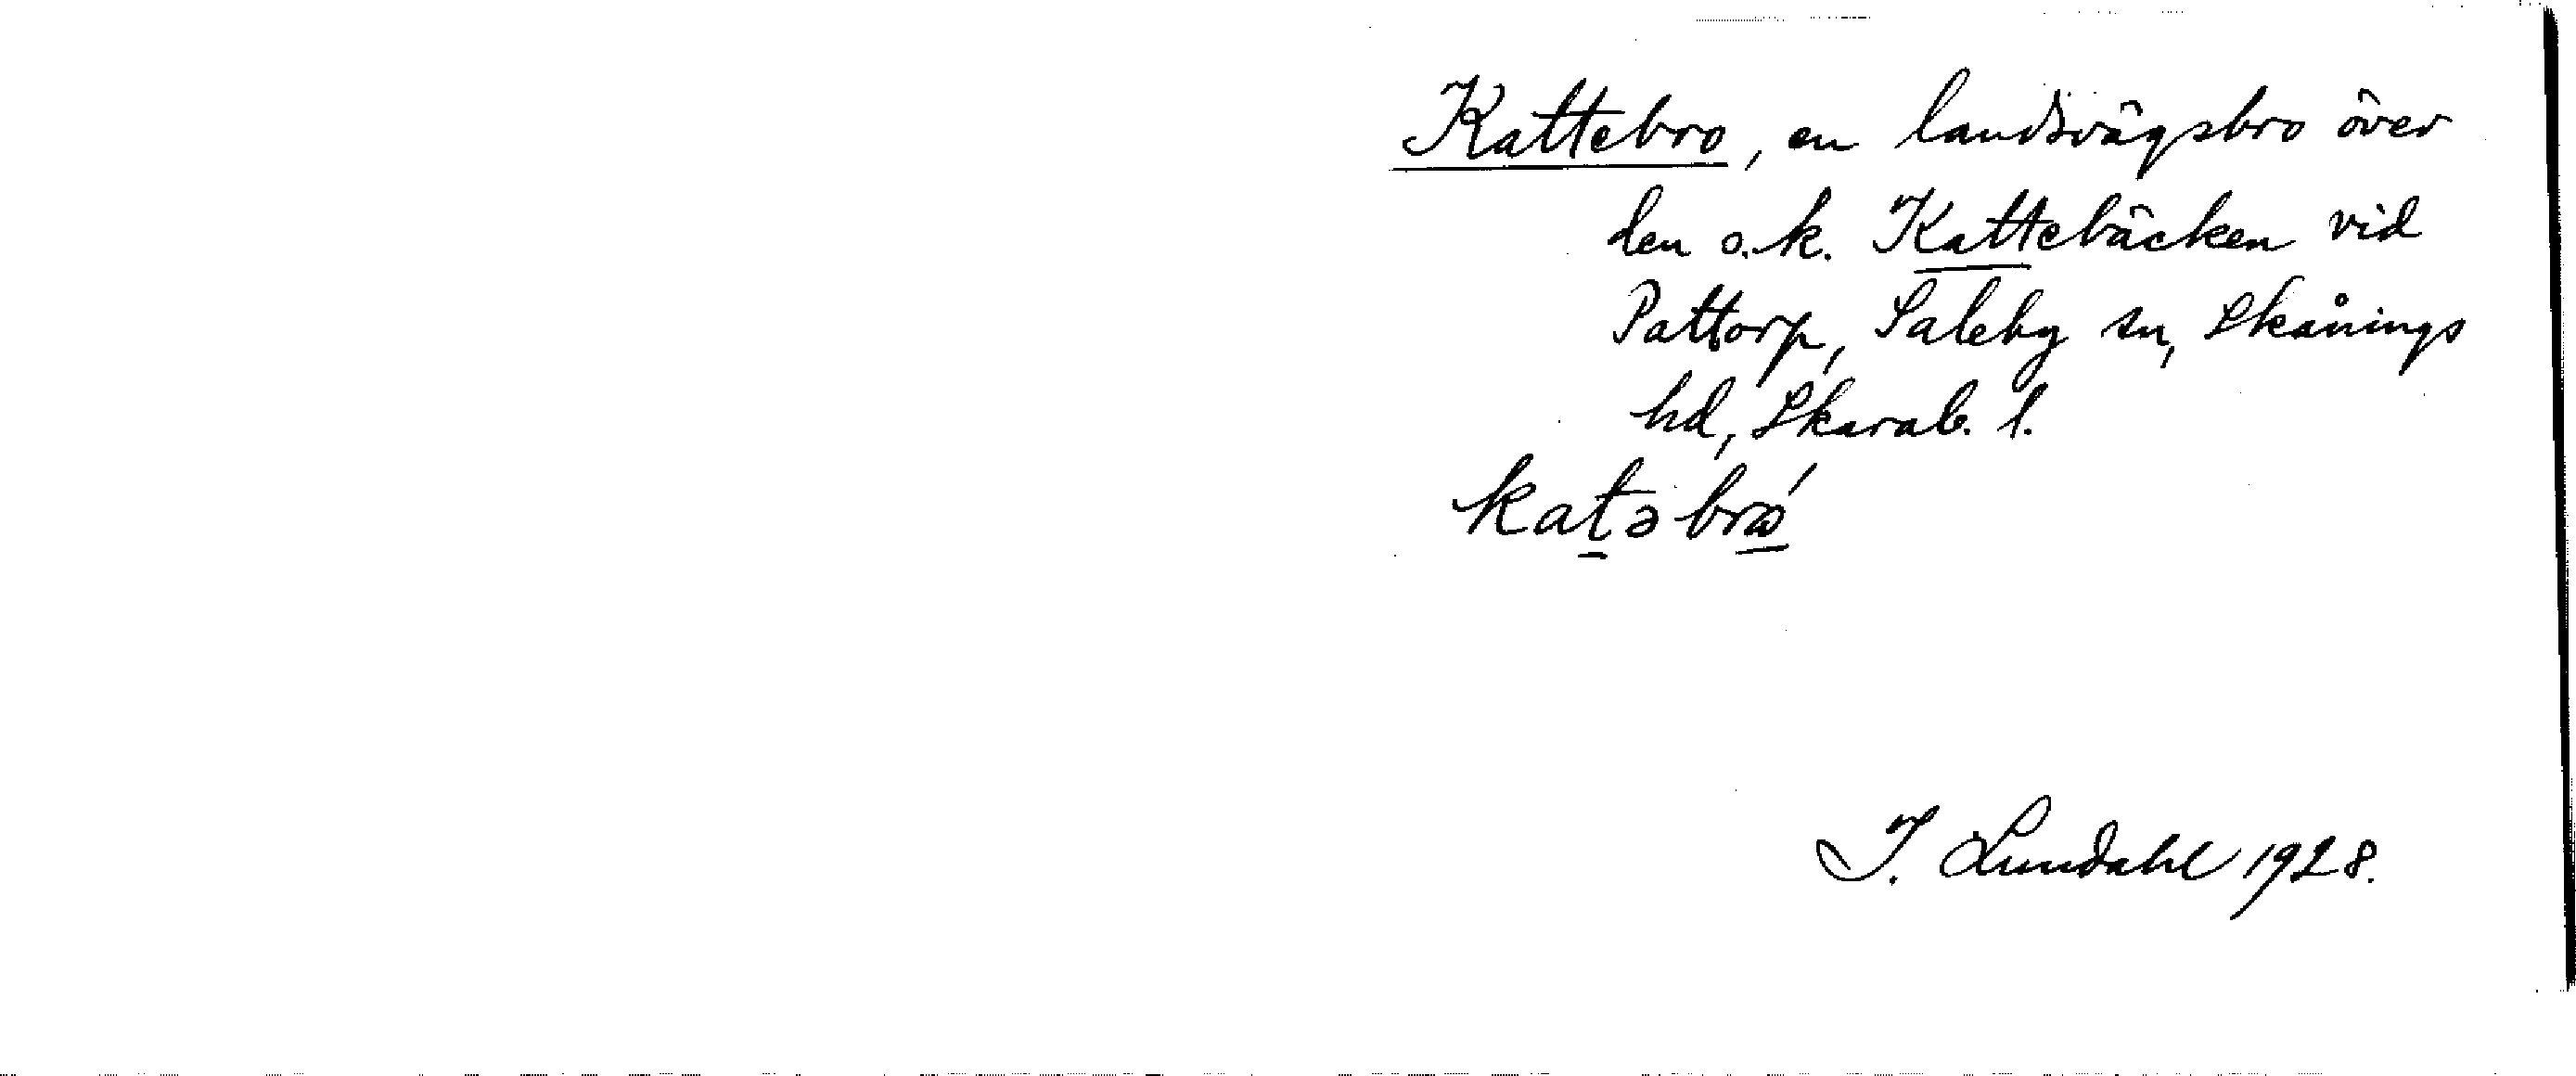 Kattebro, en landsvägsbro över
den s.k. Kattebäcken vid
Pattorp, Saleby sn, Skånings
hd, Skarab. l.
katəbrω´
I. Lundahl 1928.